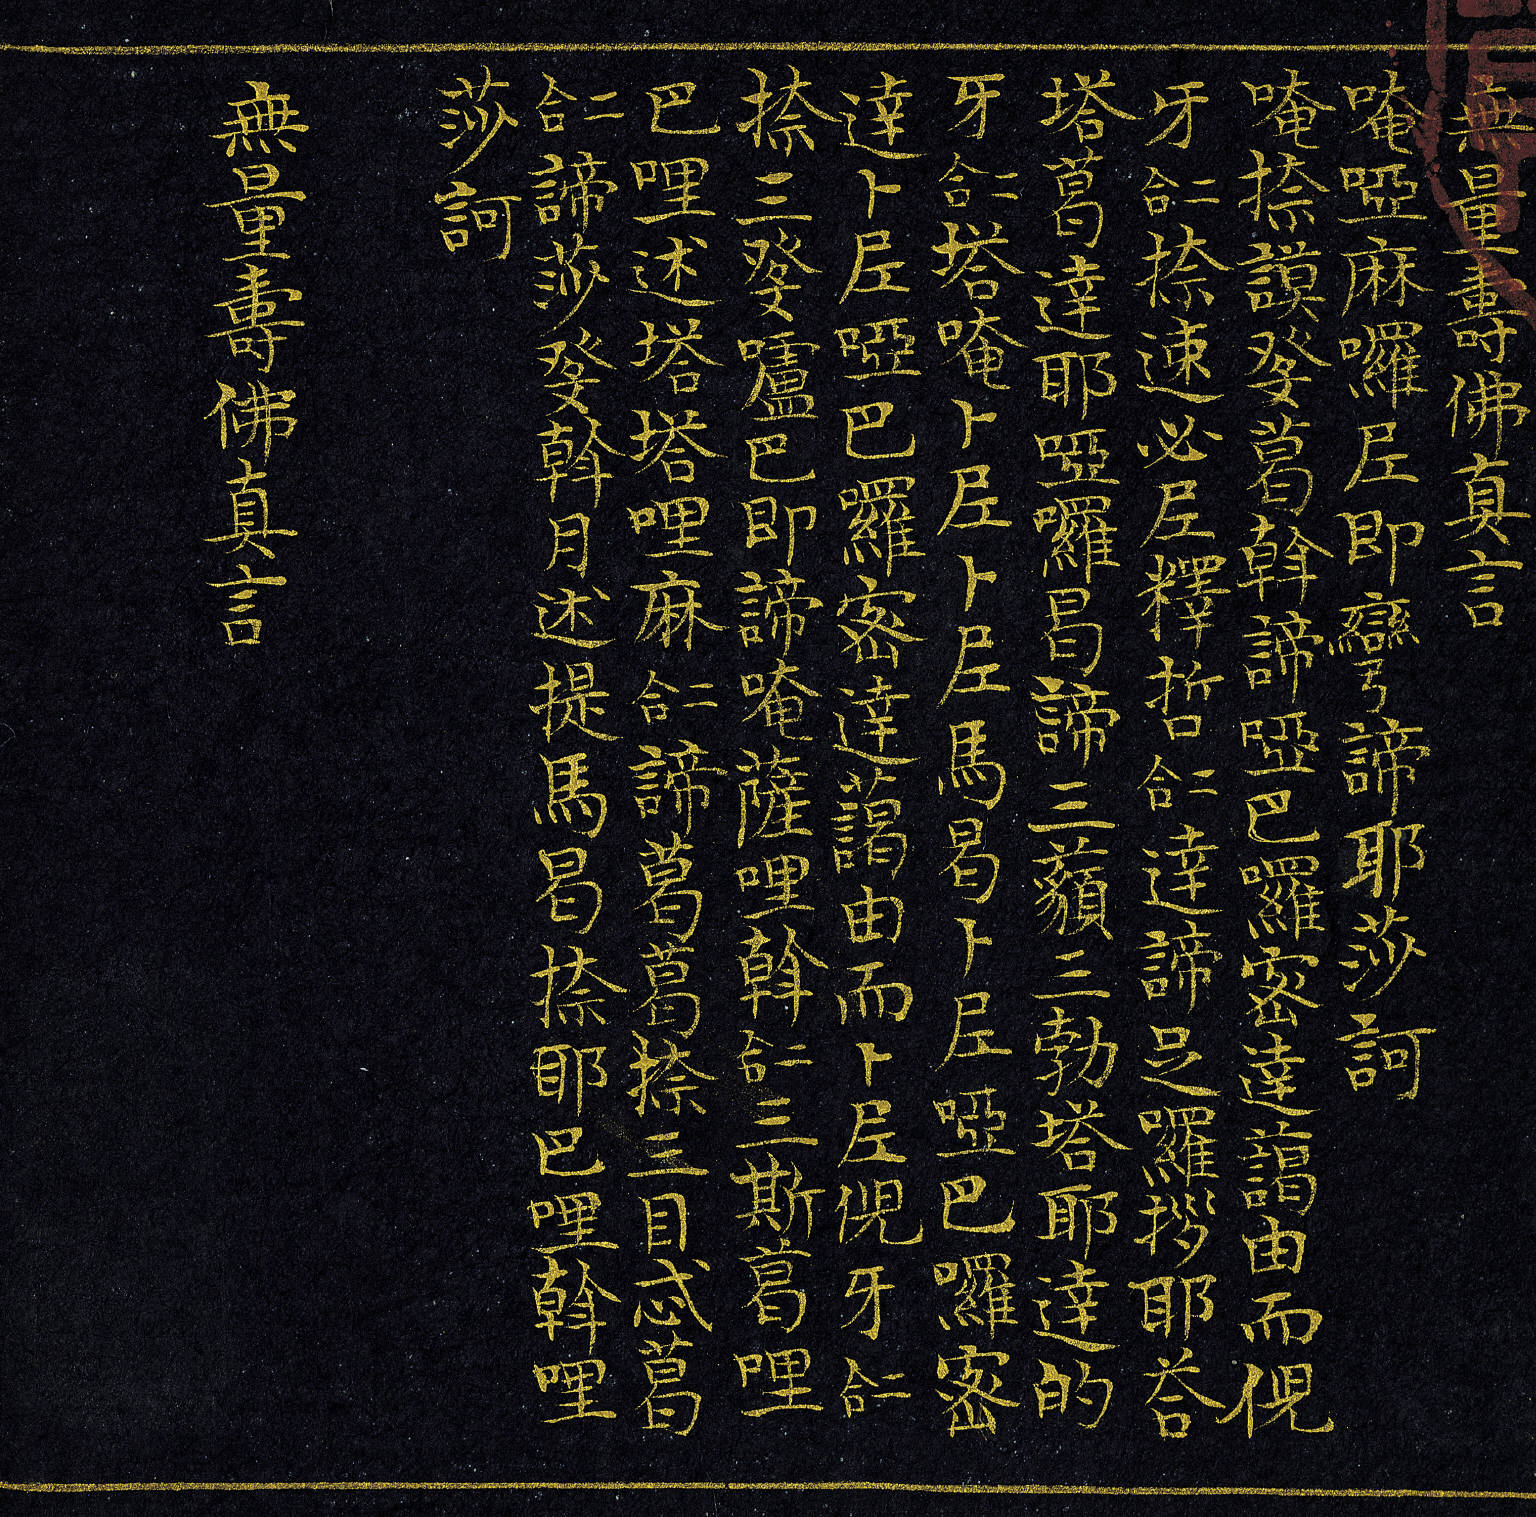 無量壽佛真言
唵啞麻囉𡰱即彎諦耶莎訶
唵捺謨癹葛斡諦啞巴囉密達藹由而俔
牙二合捺速必𡰱釋哲二合達諦足囉拶耶荅
塔葛達耶啞囉曷諦三藐三勃塔耶達的
牙二合塔唵卜𡰱卜𡰱馬曷卜𡰱啞巴囉密
達卜𡰱啞巴囉密達藹由而卜𡰱俔牙二合
捺三癹嚧巴即諦唵薩哩斡二合三斯葛哩
巴哩述塔塔哩麻二合諦葛葛捺三目忒葛
二合諦莎癹斡月述提馬曷捺耶巴哩斡哩
莎訶
無量壽佛真言